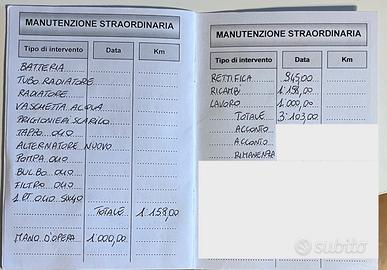 MANUTENZIONE STRAORDINARIA
Tipo di intervento Data Km
BATTERIA
TUBO RADIATORE
RADIATORE
VASCHETTA ACQUA
PRIGIONIERI SCARICO
TAPPO OLIO
ALTERNATORE NUOVO
POMPA OLIO
BULBO OLIO
FILTRO OLIO
TOTALE 1'158,00
MANO D'OPERA 1'000,00
MANUTENZIONE STRAORDINARIA
Tipo di intervento Data Km
RETTIFICA 945,00
RICAMBI 1'158,00
LAVORO 1'000,00
TOTALE 3'103,00
ACCONTO
ACCONTO
RIMANENZA
subito